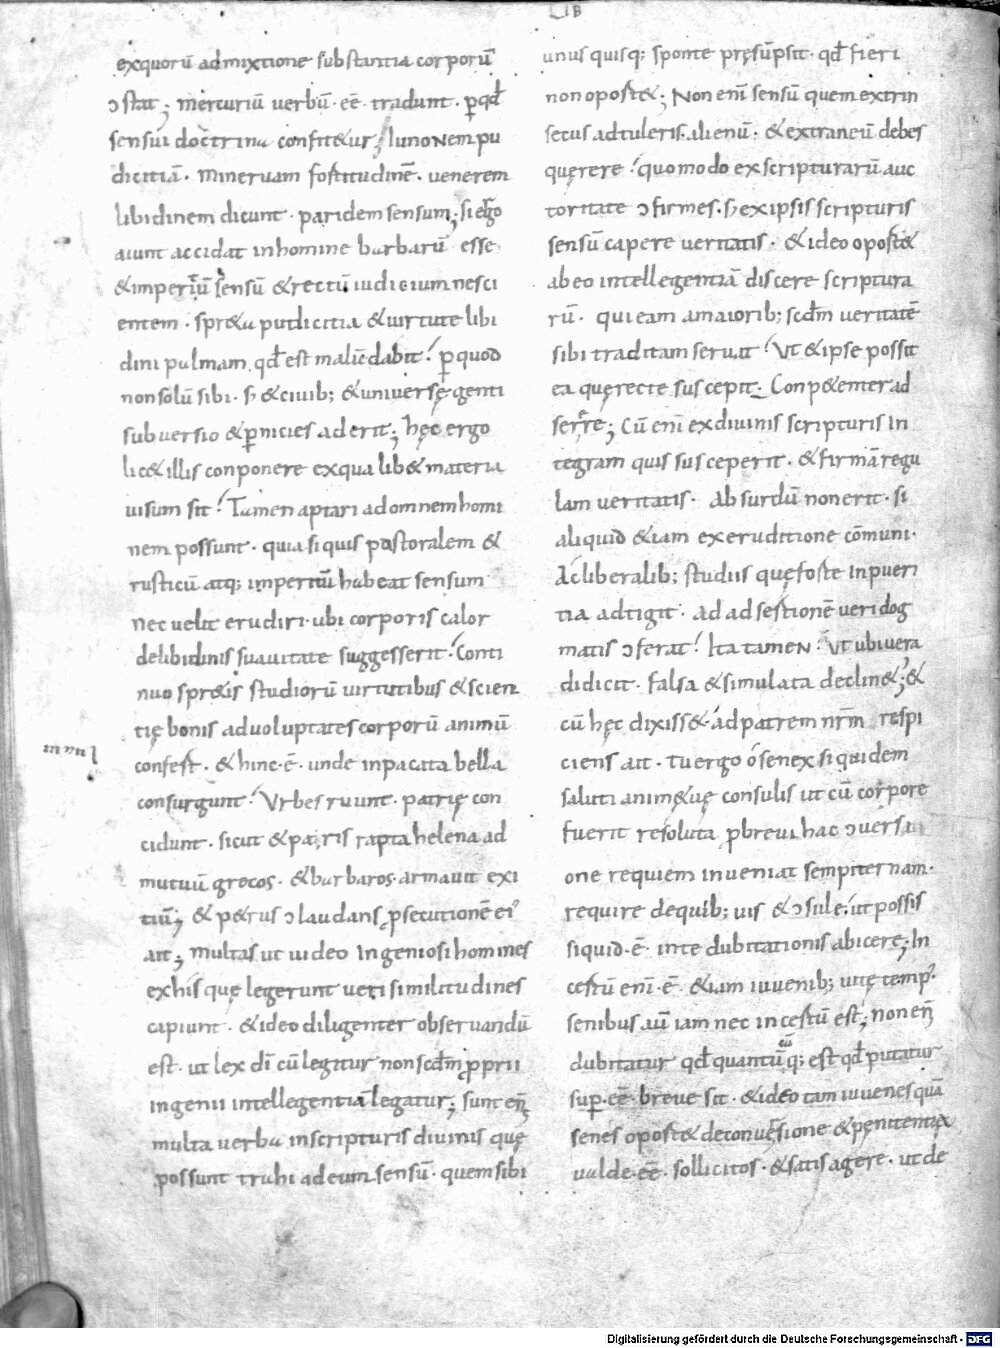 LIB
exquorū admixtione substantia corporū
ɔstat; mercuriū verbū· eē· tradunt· ꝑqđ
sensui doctrina confit&ur; Iunonem pu
dicitiā· Mineruam fortitudinē· uenerem
libidinem dicunt· paridem sensum; si erḡo
aiunt accidat inhomine barbarū esse
&imperitū sensū &rectū iudicium nesci
entem· spr&a pudicitia &uirtute libi
dini palmam qđ est malū dabit! ꝑquod
nonsolū sibi· sꝫ &ciuib; &universę genti
subuersio &ꝑnicies aderit; hęc ergo
lic&illis conponere exqua lib& materia
uisum sit! Tamen aptari adomnem homi
nem possunt· quia siquis pastoralem &
rusticū atq; imperitū habeat sensum
nec uelit erudiri· ubi corporis calor
delibidinis suauitate suggesserit! Conti
nuo spr&is studiorū uirtutibus &scien
tię bonis aduoluptates corporū animū
confert· &hinc· ē· unde inpacata bella
consurgunt! Vrbes ruunt· patrię con
cidunt· sicut &paris rapta helena ad
mutuū grecos· &barbaros armauit exi
tiū; &p&rus ɔlaudans ꝑsecutionē ei'
ait; Multas ut uideo ingeniosi homines
exhis quę legerunt ueri similitudines
capiunt· &ideo diligenter obseruandū
est· ut lex dī cū legitur non scdm̄ proprii
ingenii intellegentiā legatur; sunt en̄
multa uerba inscripturis diuinis quę
possunt trahi adeum sensū· quem sibi
unusquisq; sponte pręsūpsit· qđ fieri
non oport&; Non enī sensū quem extrin
secus adtuleris· alienū· &extraneū debes
querere! quomodo exscripturarū auc
toritate ɔfirmes· sꝫ exipsis scripturis
sensū capere ueritatis· &ideo oport&
abeo intellegentiā discere scriptura
rū· qui eam amaiorib; scdm̄ ueritatē
sibi traditam seruat! Vt &ipse possit
ea quę recte suscepit· Conp&enter ad
serere; Cū enī exdiuinis scripturis in
tegram quis susceperit· &firmā regu
lam ueritatis· Absurdū non erit· si
aliquid &iam exeruditione cōmuni·
Ac liberalib; studiis quę forte inpueri
tia adtigit· Ad adsertionē ueri dog
matis ɔferat! Ita tamen! Vt ubi uera
didicit· falsa &simulata declin&; &
cū hęc dixiss& ad patrem nr̄m respi
ciens ait· Tu ergo ó senex siquidem
saluti animę uę consulis ut cū corpore
fuerit resoluta ꝑbreui hac ɔuersi
one requiem inueniat sempiternam·
require dequib; uis &ɔsule; ut possis
siquid· ē· inte dubitationis abicere; In
certū enī· ē· &iam iuuenib; uitę temp'
senibus aū iam nec incertū est; non en̄
dubitatur qđ quantūcūq; est qđ putatur
suꝑ eē· breue sit· &ideo tam iuuenes quā
senes oport& deconuersione &pęnitentia
ualde· eē· sollicitos· &satis agere· ut de
Digitalisierung gefördert durch die Deutsche Forschungsgemeinschaft - DFG